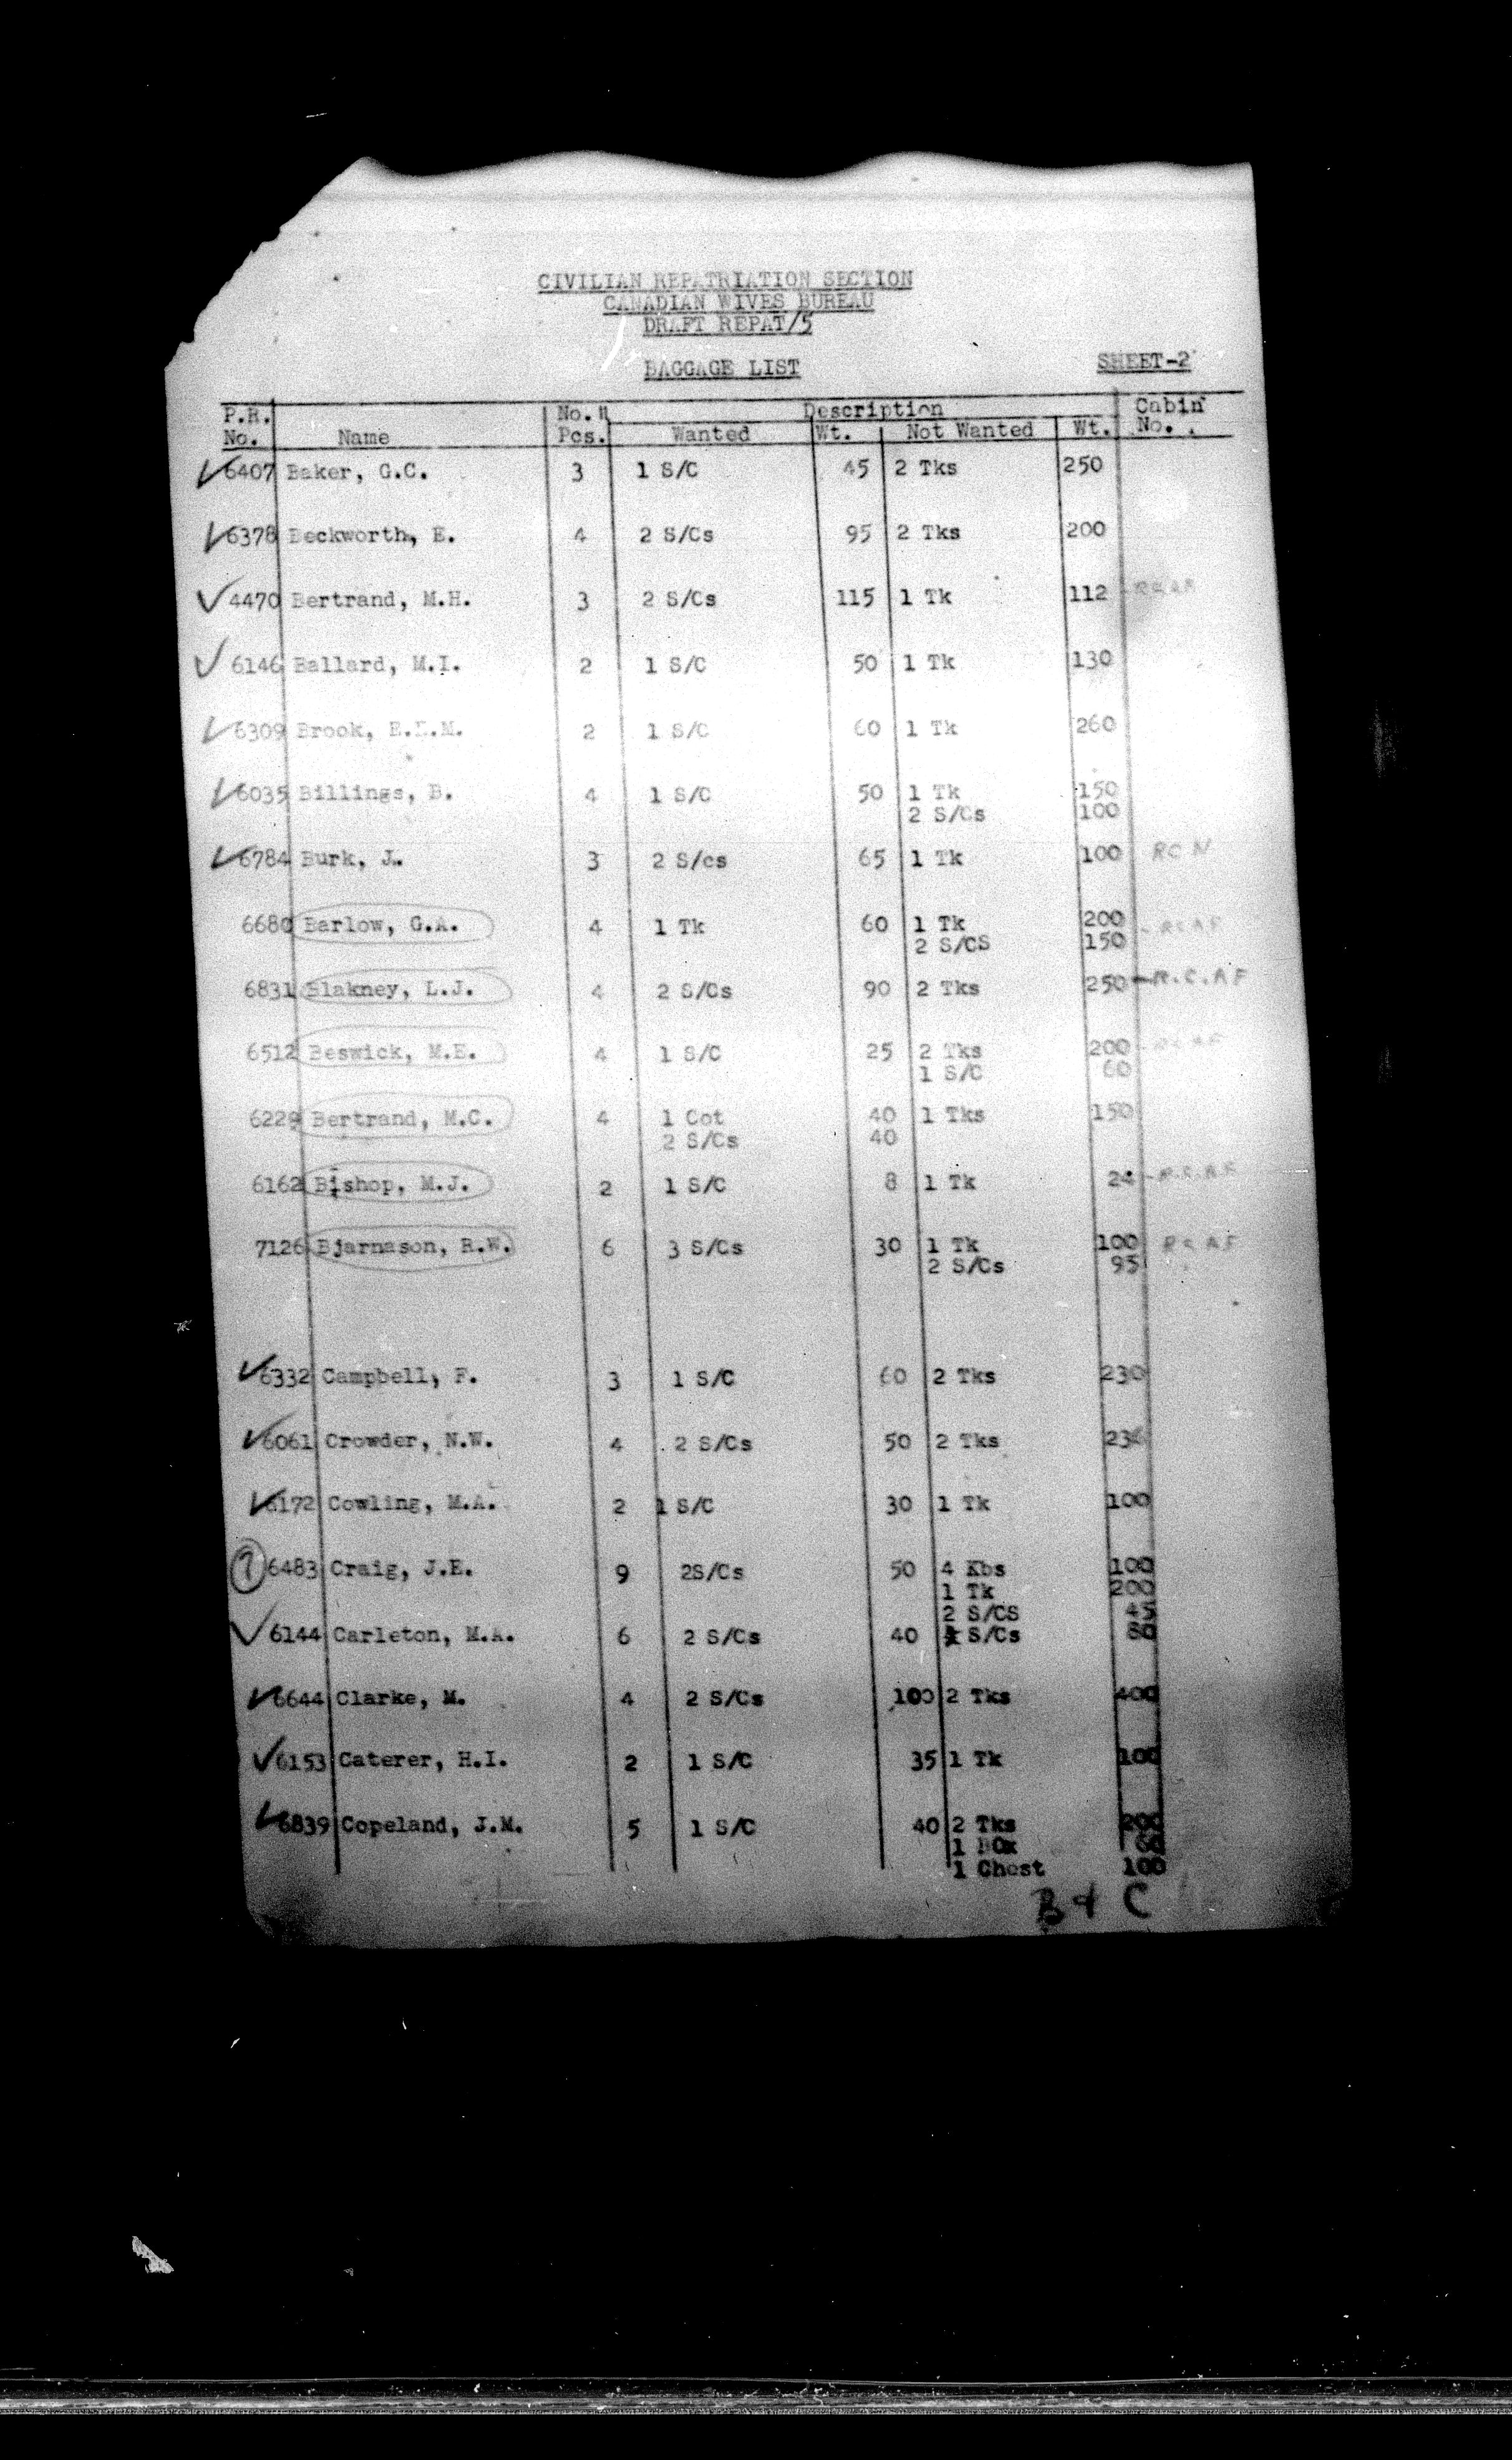 CIVILIAN REPATRIATION SECTION
CANADIAN WIVES BUREAU
DRAFT REPAT/5
BAGGAGE LIST SHEET-2
P.R. No. Name No. Pcs. Description Wanted Wt. Not Wanted Wt. Cabin No.
6407 Baker, G.C. 3 1 S/C 45 2 Tks 250
6378 Beckworth, E. 4 2 S/Cs 95 2 Tks 200
4470 Bertrand, M.H. 3 2 S/Cs 115 1 Tk 112 RCAF
6146 Ballard, M.I. 2 1 S/C 50 1 Tk 130
6309 Brook, 2 1 S/C 60 1 Tk 260
6035 Billings, B. 4 1 S/C 50 1 Tk 150
2 S/Cs 100
6784 Burk, J. 3 2 S/cs 65 1 Tk 100 RCN
6680 Barlow, G.A. 4 1 Tk 60 1 Tk 200 RCAF
2 S/CS 150
6831 Blakney, L.J. 4 2 S/Cs 90 2 Tks 250 R.C.A.F
6512 Beswick, M.E. 4 1 S/C 25 2 Tks 200 RCAF
1 S/C 60
6229 Bertrand, M.C. 4 1 Cot 40 1 Tks 150
2 S/Cs 40
6162 Bishop, M.J. 2 1 S/C 8 1 Tk 24 R.C.A.F
7126 Bjarnason, R.W. 6 3 S/Cs 30 1 Tk 100 RCAF
2 S/Cs 95
6332 Campbell, F. 3 1 S/C 60 2 Tks 230
6061 Crowder, N.W. 4 2 S/Cs 50 2 Tks
6172 Cowling, M.A. 2 1 S/C 30 1 Tk 100
? 6483 Craig, J.E. 9 2S/Cs 50 4 Kbs 100
1 Tk 200
2 S/CS 45
6144 Carleton, M.A. 6 2 S/Cs 40 S/Cs 80
6644 Clarke, M. 4 2 S/Cs 100 2 Tks 400
6153 Caterer, H.I. 2 1 S/C 35 1 Tk 100
6839 Copeland, J.M. 5 1 S/C 40 2 Tks 200
1 BOx
1 Chest 100
B & C